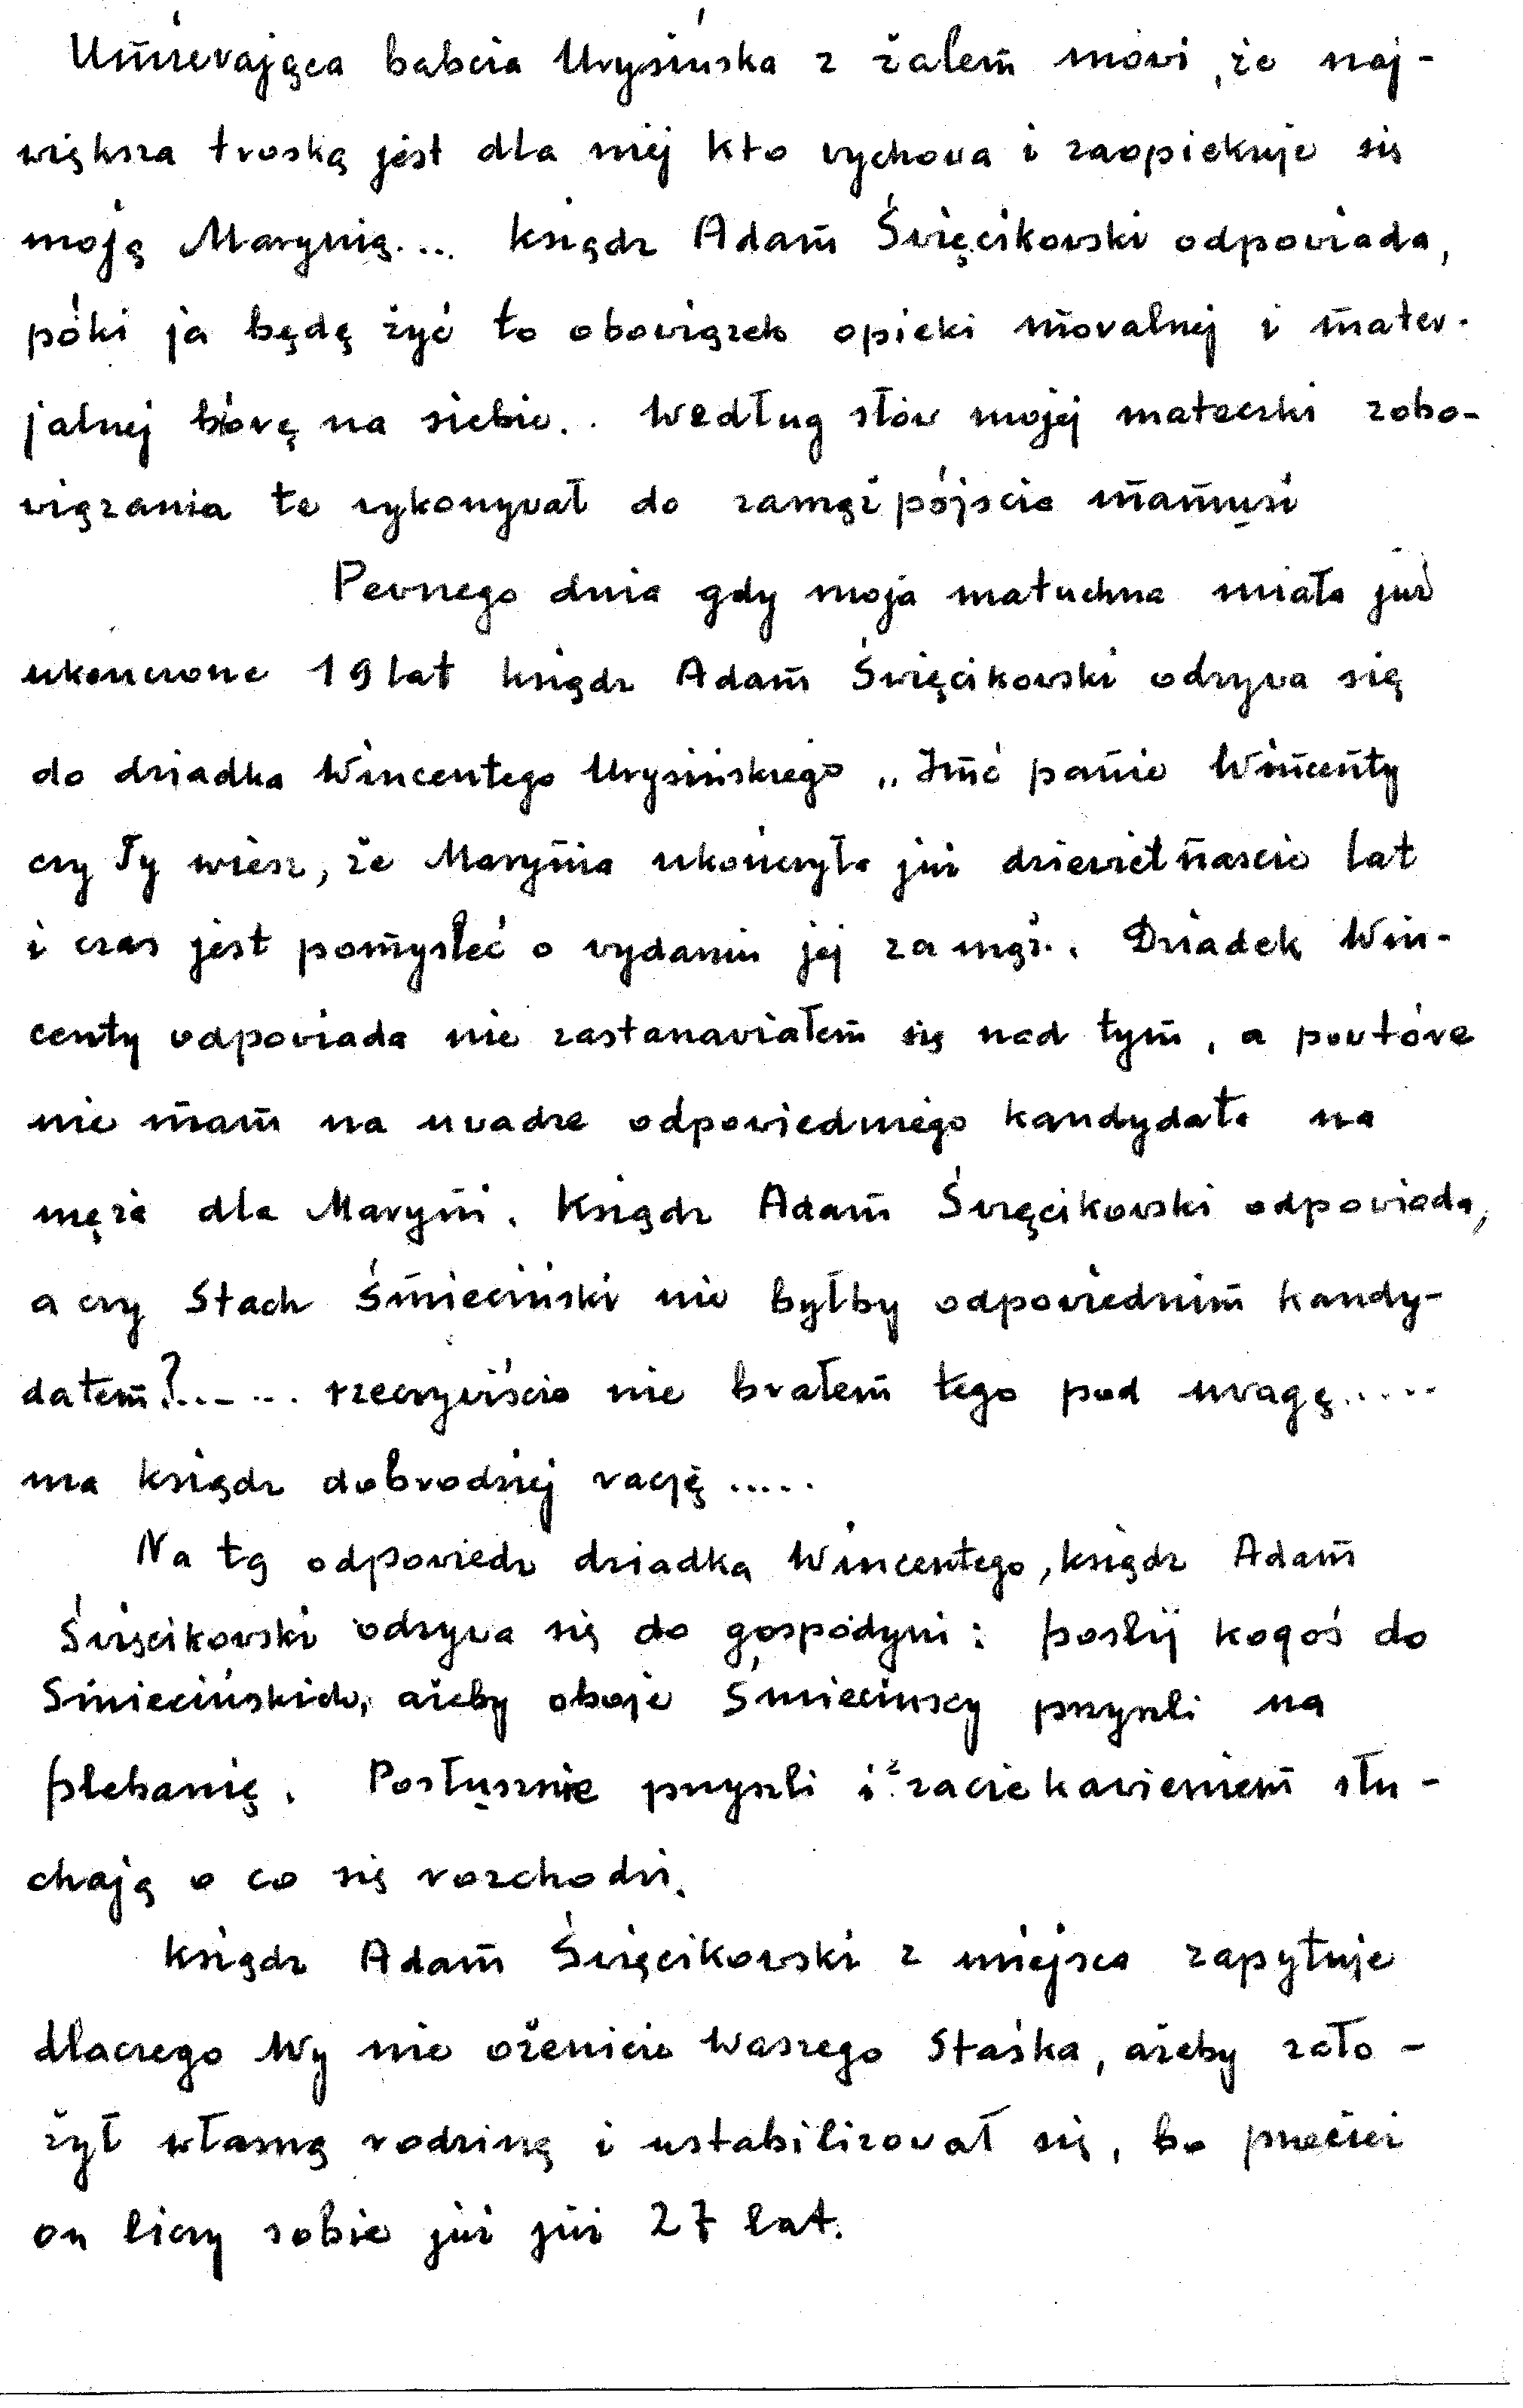 Umierająca babcia Urysińska z żalem mówi, że naj-
większa troską jest dla niej kto wychowa i zaopiekuje się
moją Marynią... ksiądz Adam Święcikowski odpowiada,
póki ja będę żyć to obowiązek opieki moralnej i mater-
jalnej biorę na siebie.. Według słów mojej mateczki zobo-
wiązania te wykonywał do zamążpójścia mamusi
Pewnego dnia gdy moja matuchna miała już
ukończone 19 lat ksiądz Adam Święcikowski odzywa się
do dziadka Wincentego Urysińskiego „Imć panie Wincenty
czy Ty wiesz, że Marynia ukończyła już dziewiętnaście lat
i czas jest pomysleć o wydaniu jej za mąż.. Dziadek Win-
centy odpowiada nie zastanawiałem się nad tym, a powtóre
nie mam na uwadze odpowiedniego kandydata na
męża dla Maryni. Ksiądz Adam Święcikowski odpowiada,
a czy Stach Śmieciński nie byłby odpowiednim kandy-
datem?...... rzeczywiście nie brałem tego pod uwagę.....
ma ksiądz dobrodziej rację.....
Na tą odpowiedz dziadka Wincentego, ksiądz Adam
Święcikowski odzywa się do gospodyni: poslij kogoś do
Smiecińskich, ażeby oboje Śmiecinscy przyszli na
plebanię. Posłusznie przyszli i z zaciekawieniem słu-
chają o co się rozchodzi.
ksiądz Adam Święcikowski z miejsca zapytuje
dlaczego Wy nie ożenicie Waszego Staśka, ażeby zało-
żył własną rodzinę i ustabilizował się, bo przecież
on liczy sobie już już 27 lat.